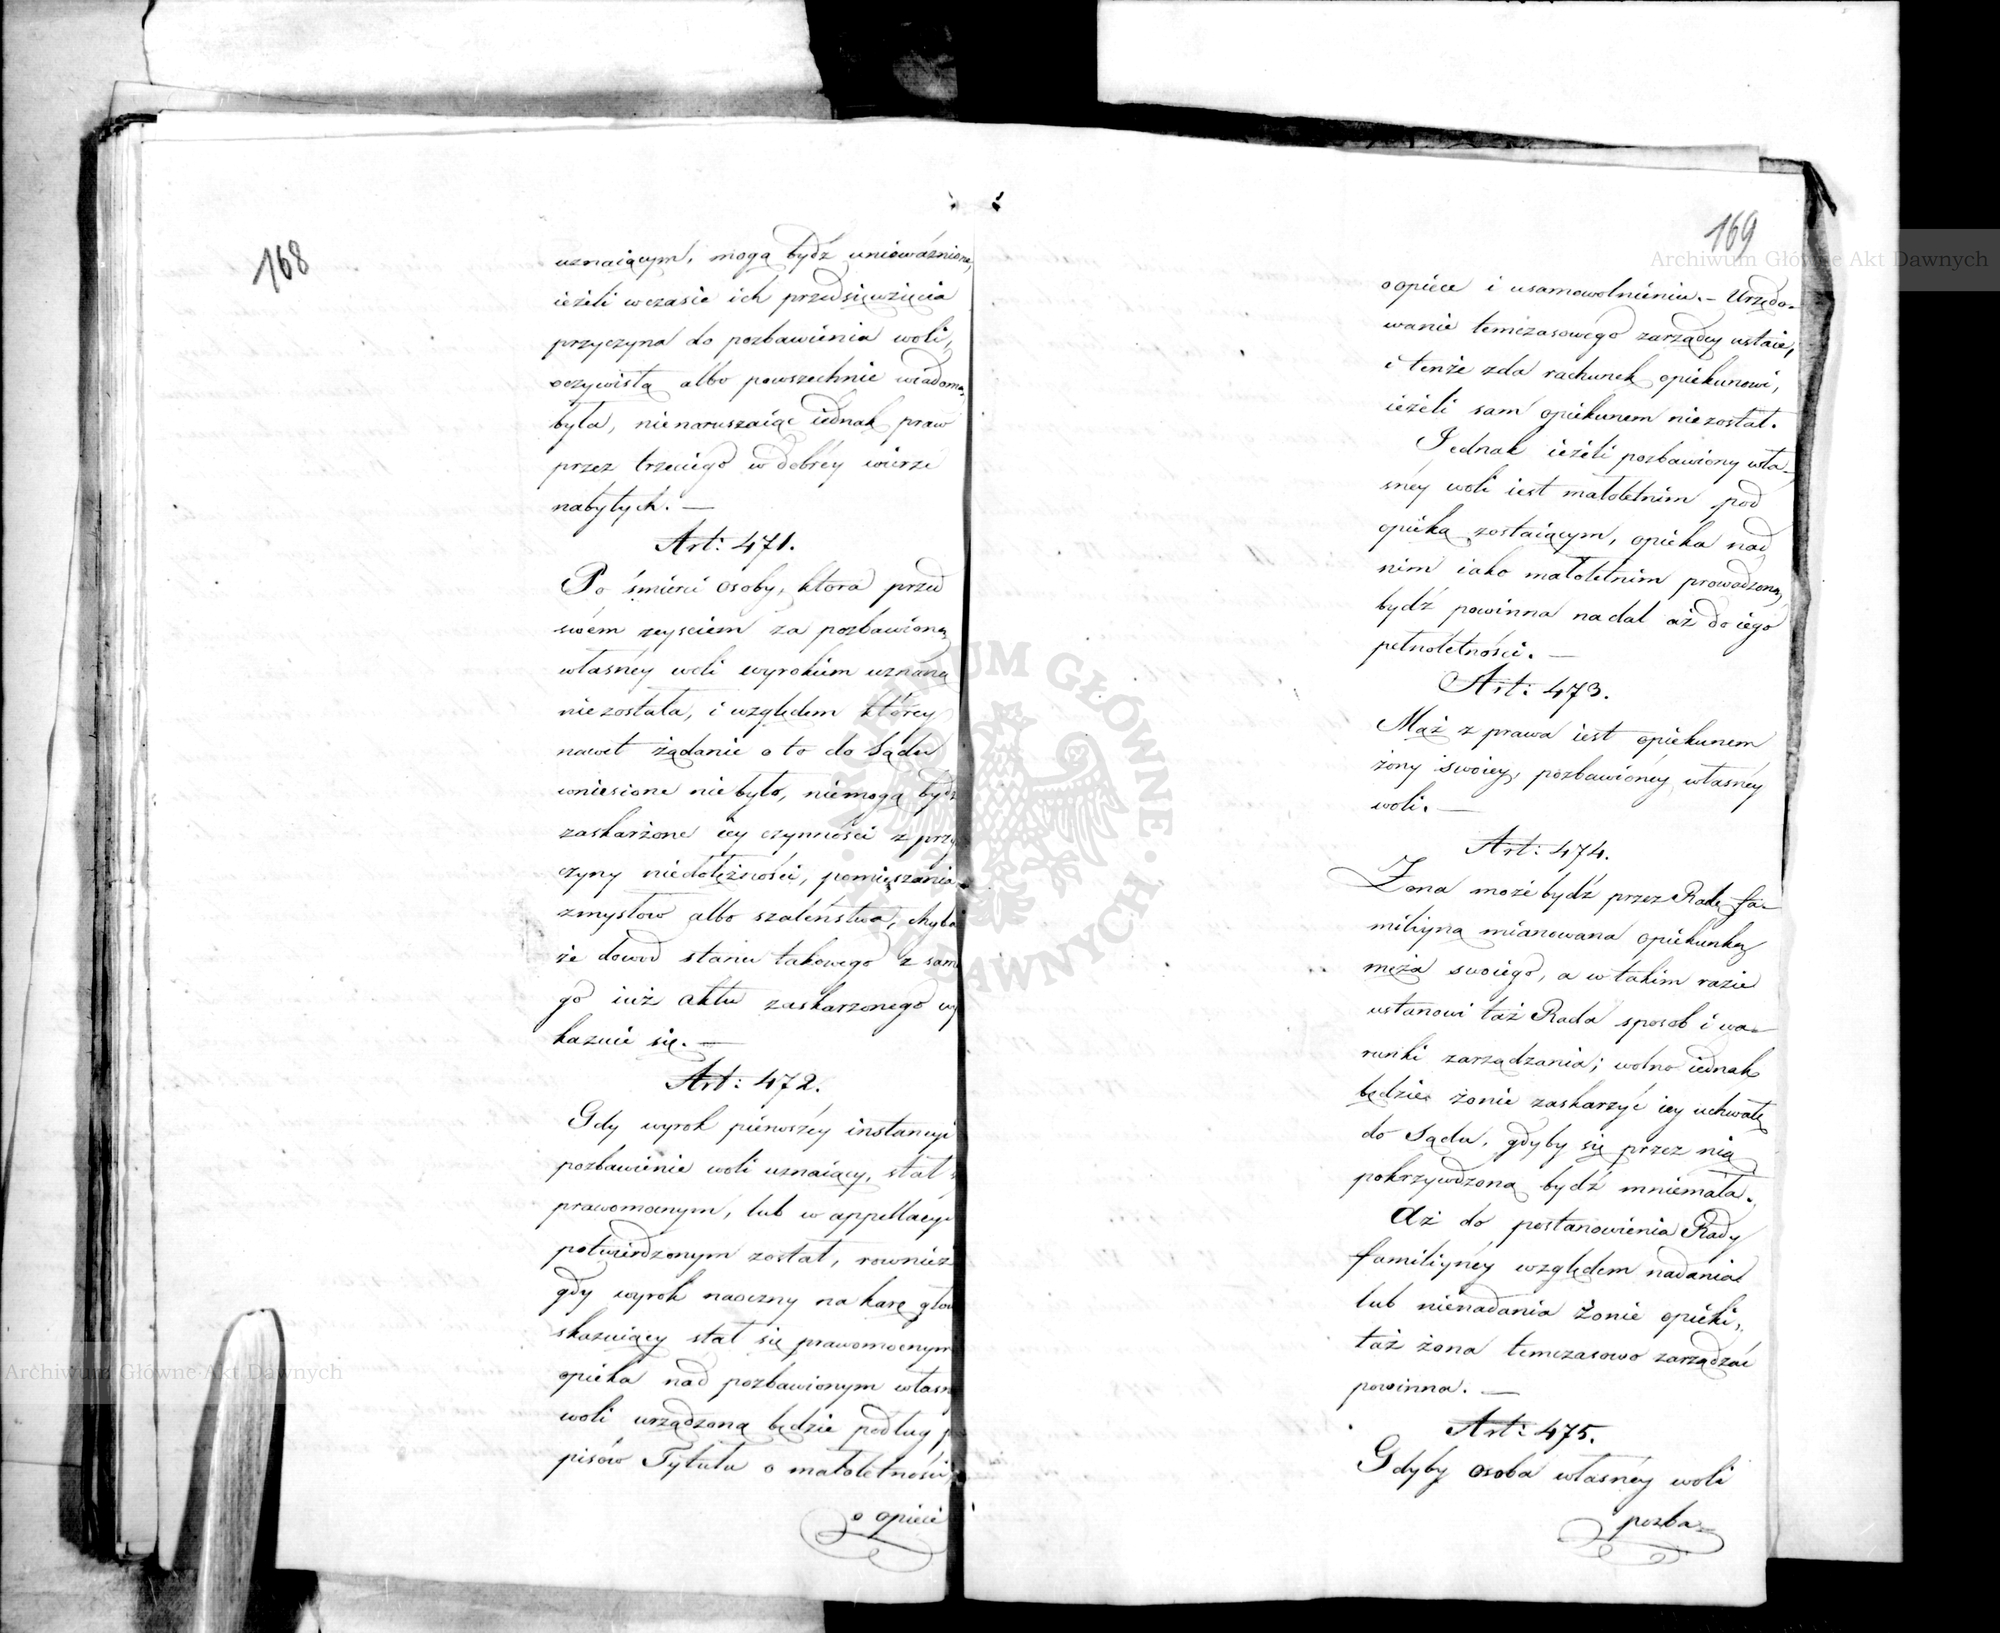 168
uznaiącym, mogą bydź unieważnione,
ieżeli w czasie ich przedsięwzięcia
przyczyna do pozbawienia woli,
oczywistą albo powszechnie wiadomą
była, nienaruszaiąc iednak praw
przez trzeciego w dobréy wierze
nabytych. —
Art: 471.
Po śmierci osoby, która przed
swém zeyściem za pozbawioną
własnéy woli wyrokiem uznaną
niezostała, i względem któréy
nawet żądanie o to do Sądu
wniesione niebyło, niemogą bydź
zaskarżone iey czynności z przy
czyny niedołężności, pomięszania
zmysłow albo szaleństwa, chyba
że dowod stanu takowego z same
go iuż aktu zaskarzonego wy
kazuie się. —
Art: 472.
Gdy wyrok pierwszéy instancyi
pozbawienie woli uznaiący, stał
prawomocnym, lub w appellacyi
potwierdzonym został, rownież
gdy wyrok naoczny na karę głów
skazuiący stał się prawomocnym
opieka nad pozbawionym własn
woli urządzoną będzie podług p
pisów Tytułu o małoletności,
o opiece
169
o opiece i usamowolnieniu. — Urzędo-
wanie temczasowego zarządcy ustaie,
i tenże zda rachunek opiekunowi,
ieżeli sam opiekunem niezostał.
Jednak ieżeli pozbawiony wła-
snéy woli iest małoletnim pod
opieką zostaiącym, opieka nad
nim iako małoletnim prowadzoną
bydź powinna nadal aż do iego
pełnoletności. —
Art: 473.
Mąż z prawa iest opiekunem
żony swoiey, pozbawionéy własnéy
woli. —
Art: 474.
Zona może bydź przez Radę fa-
miliyną mianowana opiekunką
męża swoiego, a w takim razie
ustanowi taż Rada sposob i wa-
runki zarządzania; wolno iednak
będzie żonie zaskarzyć iey uchwałę
do Sądu, gdyby się przez nią
pokrzywdzoną bydź mniemała.
Aż do postanowienia Rady
familiynéy względem nadania
lub nienadania żonie opieki,
taż żona temczasowo zarządzać
powinna. —
Art: 475.
Gdyby osoba własnéy woli
pozba-
Archiwum Główne Akt Dawnych
Archiwum Główne Akt Dawnych
ARCHIWUM GŁÓWNE AKT DAWNYCH